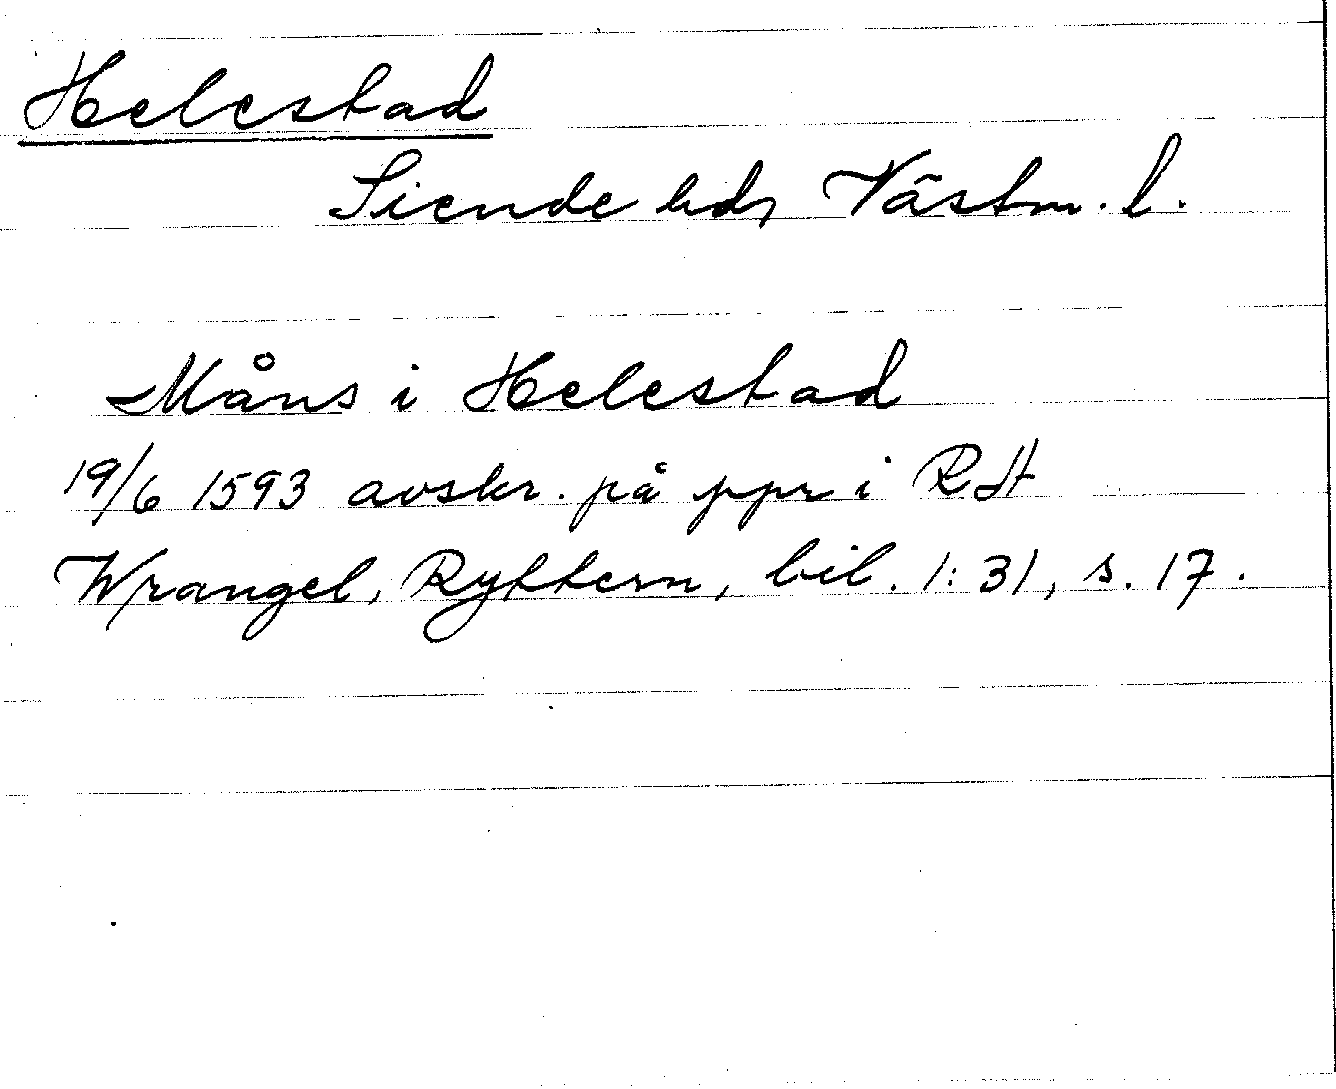 Helestad
Siende hd, Västm. l.
Måns i Helestad
19/6 1593 avskr. på ppr i RA
Wrangel, Ryttern, bil. 1:31, s. 17.